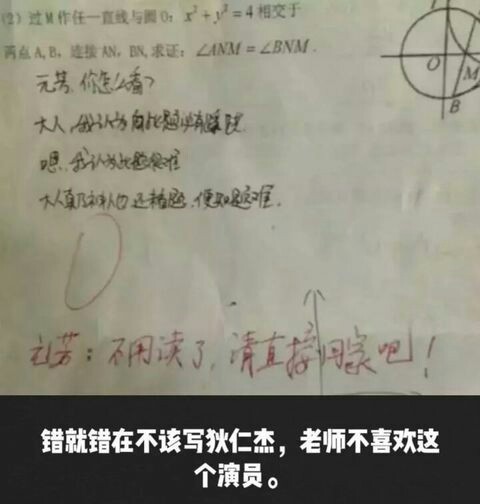 (2) 过M作任一直线与圆O: x²+y²=4相交于
两点A, B, 连接AN, BN, 求证: ∠ANM=∠BNM.
O
M
B
元芳, 你怎么看?
大人, 我认为此题
嗯, 我认为此题很难
大人真乃神人也 还没看题, 便知题难.
0
元芳: 不用读了, 请直接回家吧!
错就错在不该写狄仁杰，老师不喜欢这
个演员。